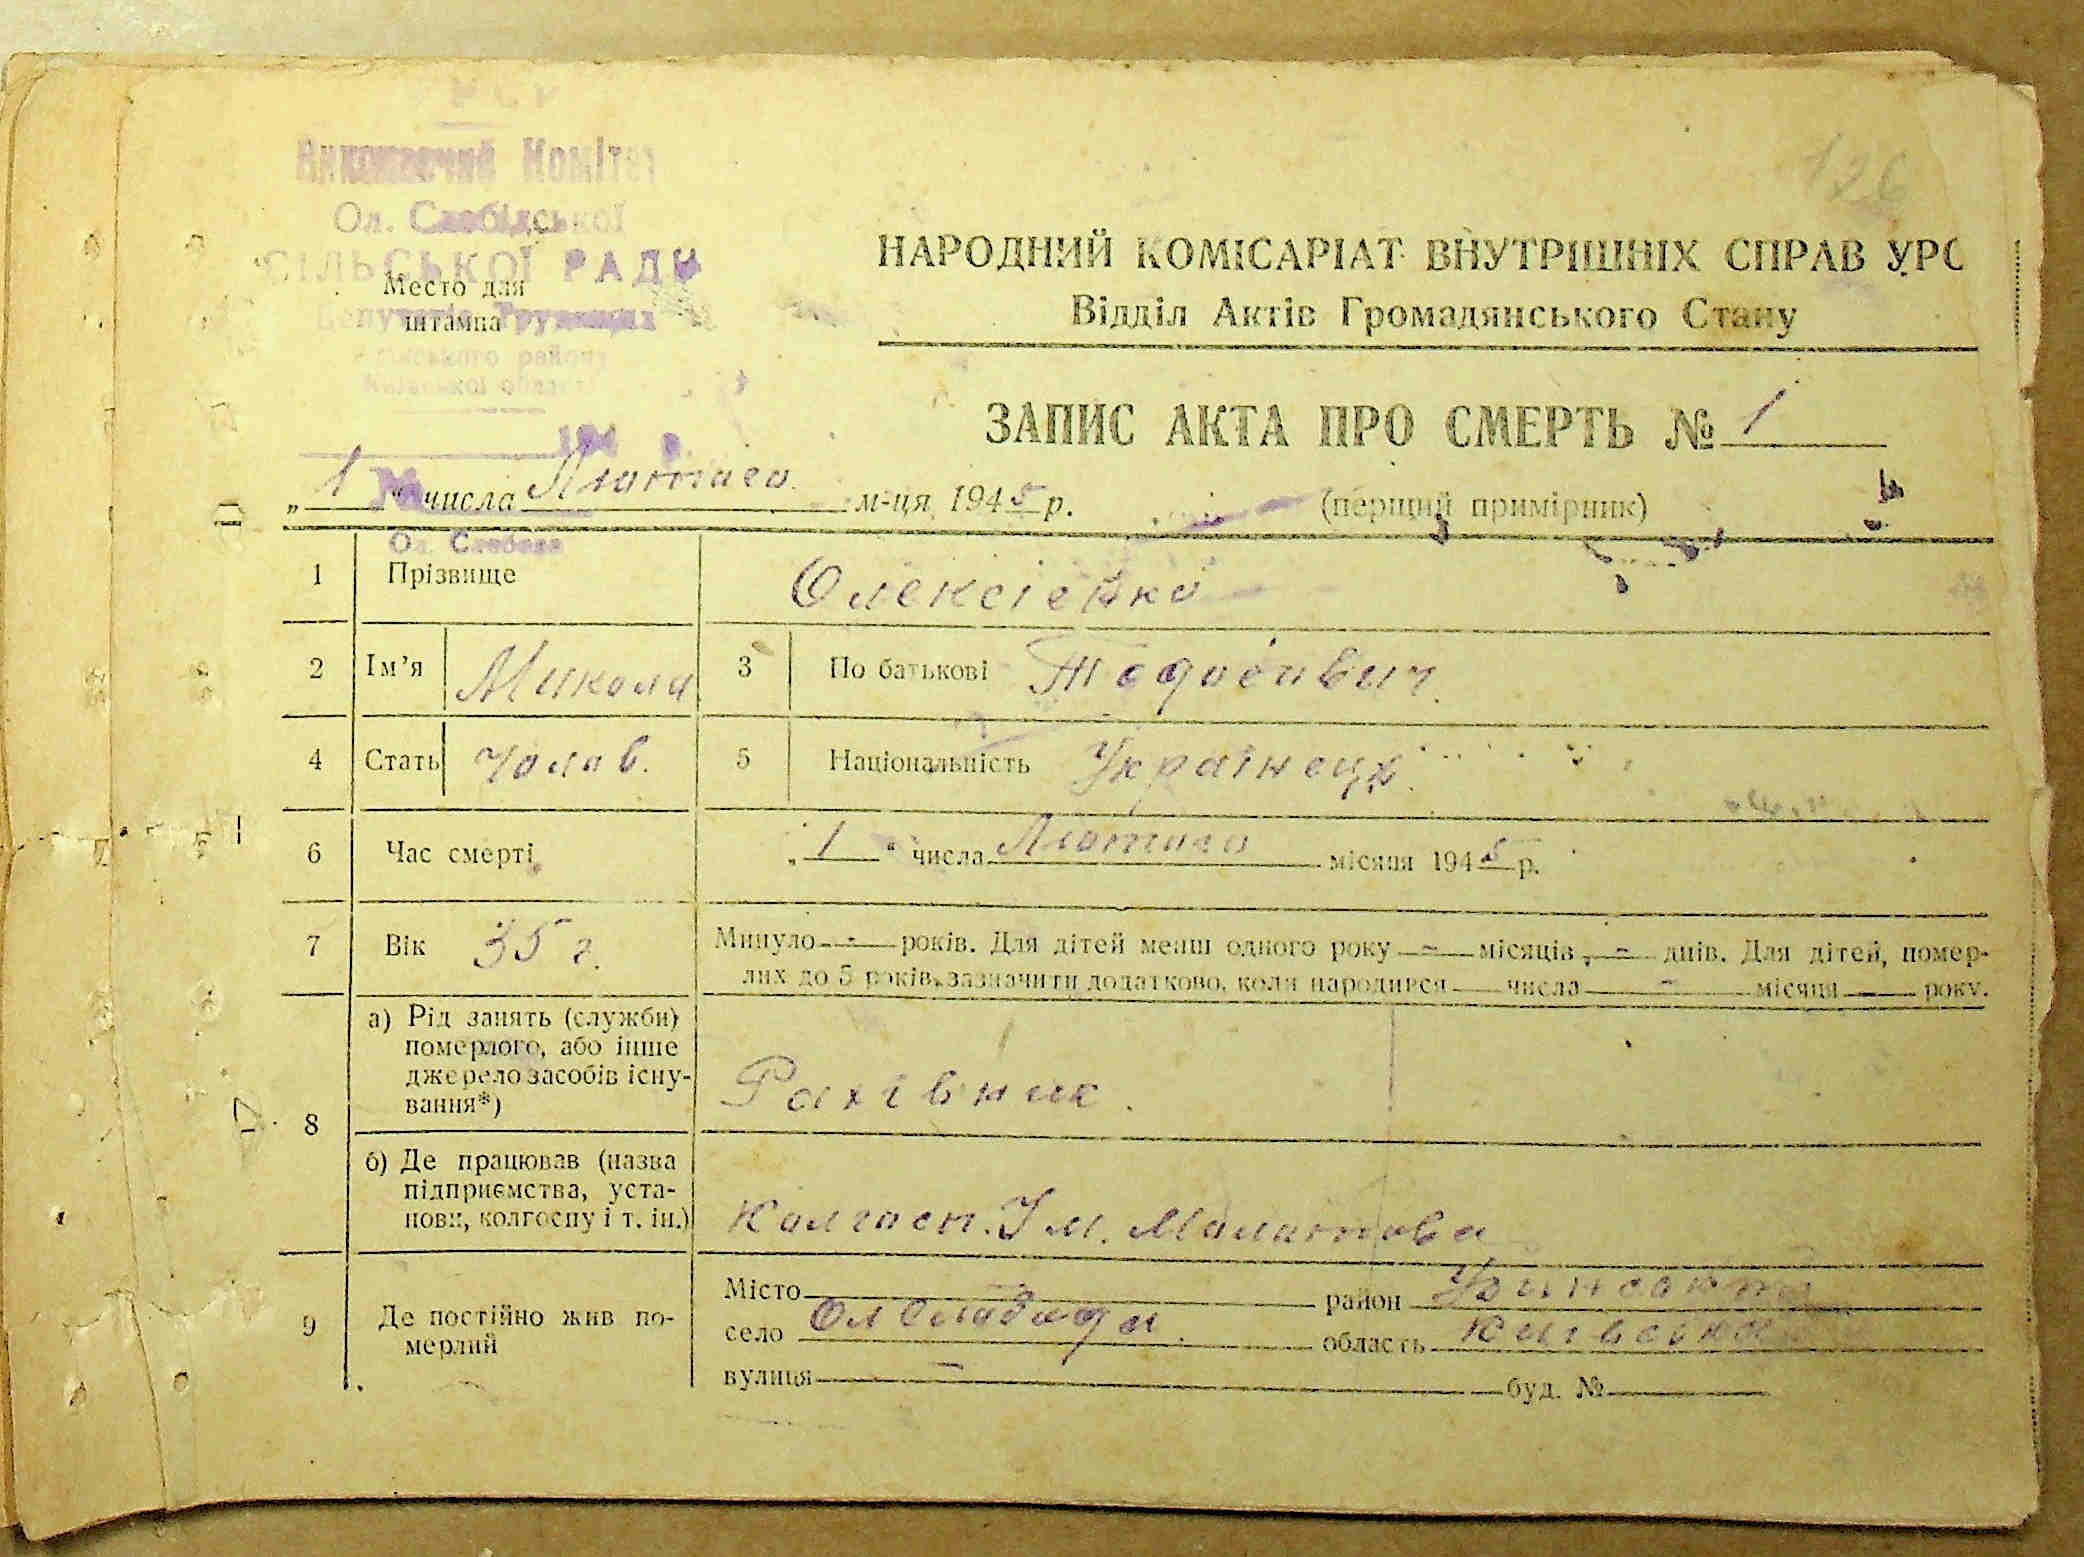 126
Виконавчий Комітет
Ол. Слобідської
СІЛЬСЬКОЇ РАДИ
Депутатів Трудящих
району
Київської області
Место для
штампа
НАРОДНИЙ КОМІСАРІАТ ВНУТРІШНІХ СПРАВ УРС
Відділ Актів Громадянського Стану
ЗАПИС АКТА ПРО СМЕРТЬ № 1
194 р.
„ 1 “ числа Лютаго м-ця 1945 р. (перший примірник)
Ол. Слобода
1 Прізвище Олексієнко
2 Ім’я Микола 3 По батькові
4 Стать Чолов. 5 Національність Українець.
6 Час смерті „ 1 “ числа Лютого місяця 1945 р.
7 Вік 35 г. Минуло - років. Для дітей менш одного року - місяців, - днів. Для дітей, помер-
лих до 5 років, зазначити додатково, коли народився числа - місяця року.
8 а) Рід занять (служби)
померлого, або інше
джерело засобів існу-
вання*)
Рахівник.
б) Де працював (назва
підприємства, уста-
нови, колгоспу і т. ін.)
Колгосп. Ім. Молотова
9 Де постійно жив по-
мерлий
Місто район
село Ол Слобода. область Київська
вулиця - буд. №